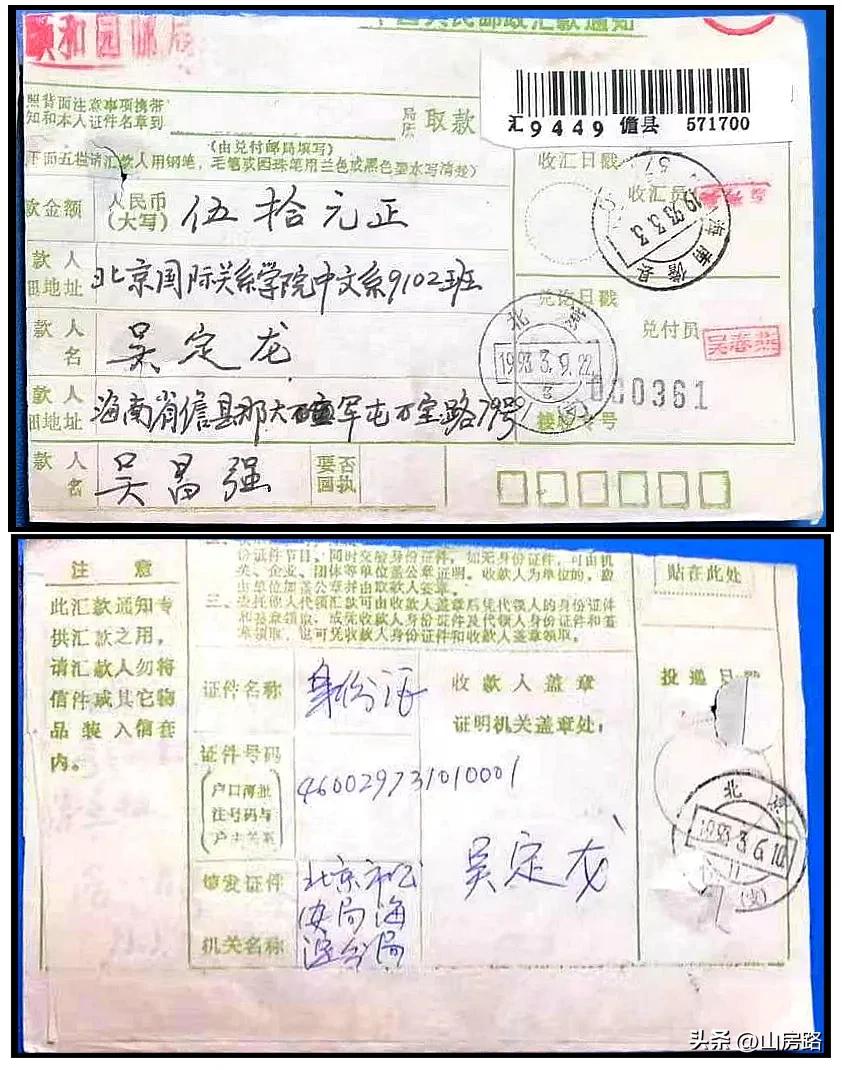 颐和园邮局
中国人民邮政汇款通知
照背面注意事项携带
知和本人证件名章到
局
取款
(由兑付邮局填写)
下面五栏请汇款人用钢笔,毛笔或圆珠笔用兰色或黑色墨水写清楚)
汇9449 儋县 571700
收汇日戳
收汇员
海南儋县
1993.3.3
款金额
人民币
(大写)
伍拾元正
款人
细地址
北京国际关系学院中文系9102班
兑讫日戳
兑付员
吴春燕
北京
1993.3.9.22
(支)
款人
名
吴定龙
000361
接转专号
款人
细地址
海南省儋县那大
军屯万宝路79号
款人
名
吴昌强
要否
回执
注意
此汇款通知专
供汇款之用,
请汇款人勿将
信件或其它物
品装入信套
内。
份证件节目、同时交验身份证件,如无身份证件,可由机
关、企业、团体等单位盖公章证明。收款人为单位的,应
由单位加盖公章并由取款人签章。
三、委托他人代领汇款可由收款人盖章后凭代领人的身份证件
和签章领取,或凭收款人身份证件及代领人身份证件和签
章领取,也可凭收款人身份证件和收款人盖章领取。
贴在此处
证件名称
身份证
收款人盖章
证明机关盖章处:
投递日戳
证件号码
(户口簿批
注号码与
户主关系)
460029731010001
吴定龙
北京
1993.3.6.10
(支)
填发证件
机关名称
北京市公
安局海
淀分局
头条 @山房路